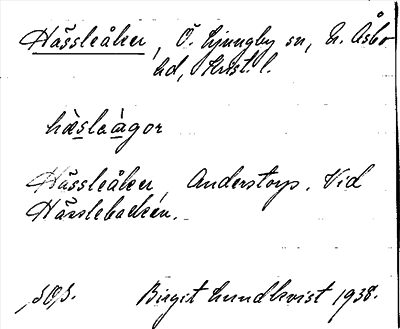 Hässleåker, Ö. Ljungby sn, N. Åsbo
hd, Krist. l.
hæ̀slaàgor
Hässleåker, Anderstorp. Vid
Hässlebacken.
Birgit Lundkvist 1938.